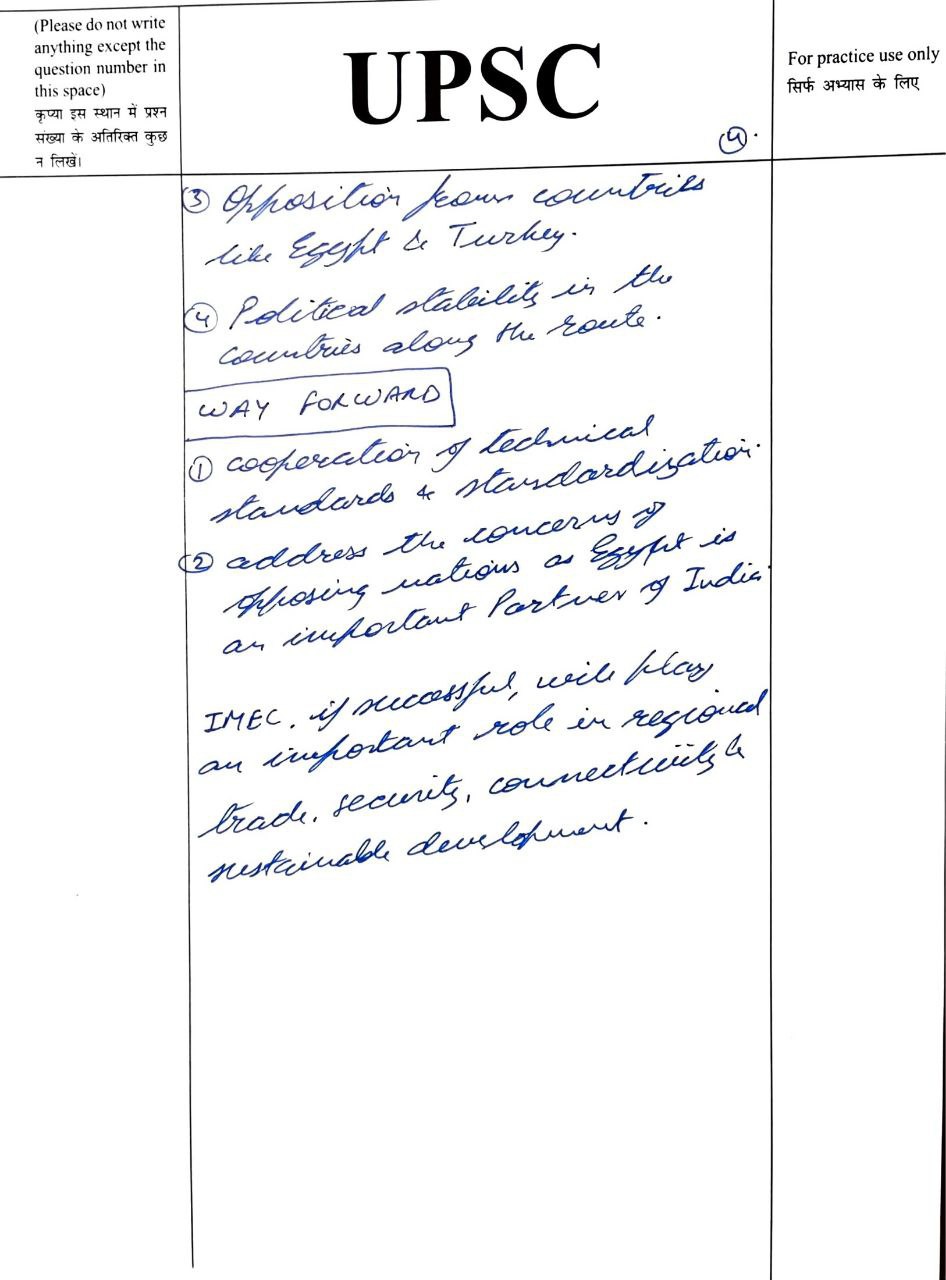 (Please do not write
anything except the
question number in
this space)
कृप्या इस स्थान में प्रश्न
संख्या के अतिरिक्त कुछ
न लिखें।
UPSC
For practice use only
सिर्फ अभ्यास के लिए
4.
3 Opposition from countries
like Egypt & Turkey.
4 Political stability in the
countries along the route.
WAY FORWARD
1 cooperation of technical
standards & standardization.
2 address the concerns of
opposing nations as Egypt is
an important Partner of India.
IMEC, if successful, will play
an important role in regional
trade, security, connectivity &
sustainable development.